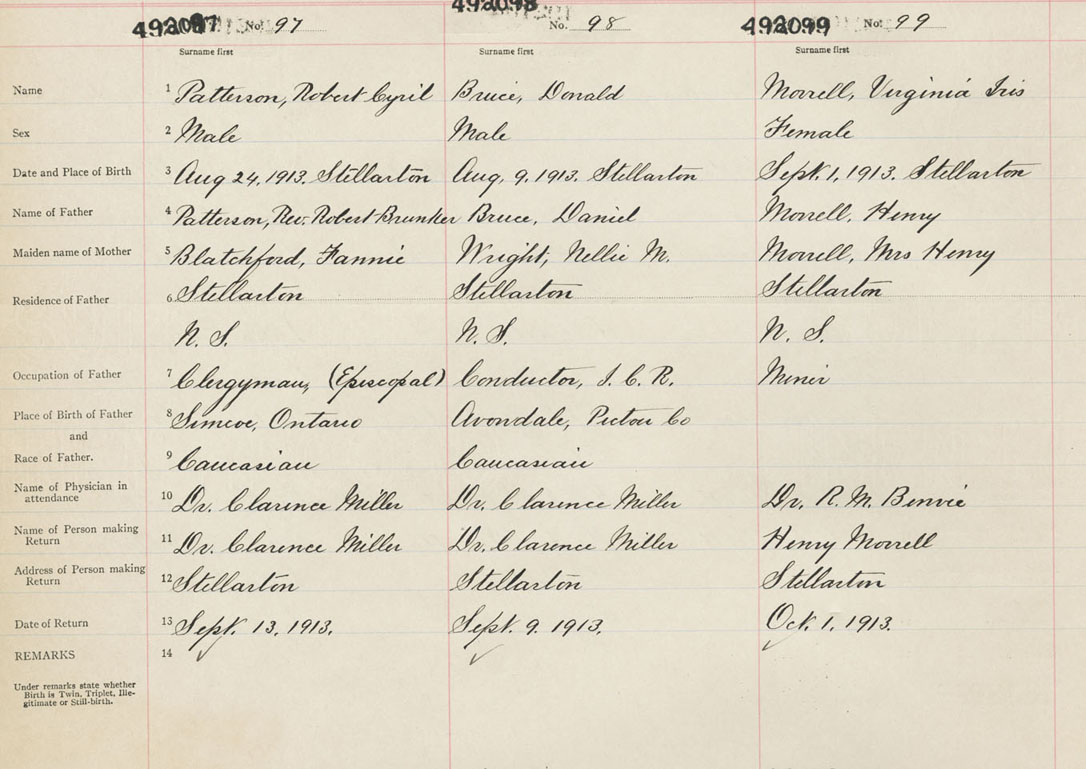 492097 No. 97 492098 No. 98 492099 No. 99
Surname first Surname first Surname first
Name 1 Patterson, Robert Cyril Bruce, Donald Morrell, Virginia Iris
Sex 2 Male Male Female
Date and Place of Birth 3 Aug 24, 1913. Stellarton Aug. 9. 1913. Stellarton Sept. 1, 1913. Stellarton
Name of Father 4 Patterson, Rev. Robert Brunker Bruce, Daniel Morrell, Henry
Maiden name of Mother 5 Blatchford, Fannie Wright, Nellie M. Morrell, Mrs Henry
Residence of Father 6 Stellarton Stellarton Stellarton
N. S. N. S. N. S.
Occupation of Father 7 Clergyman, (Episcopal) Conductor, I. C. R. Miner
Place of Birth of Father 8 Simcoe, Ontario Avondale, Pictou Co
and
Race of Father. 9 Caucasian Caucasian
Name of Physician in
attendance 10 Dr. Clarence Miller Dr. Clarence Miller Dr. R. M. Benvie
Name of Person making
Return 11 Dr. Clarence Miller Dr. Clarence Miller Henry Morrell
Address of Person making
Return 12 Stellarton Stellarton Stellarton
Date of Return 13 Sept. 13, 1913. Sept. 9. 1913. Oct. 1, 1913.
REMARKS 14
Under remarks state whether
Birth is Twin, Triplet, Ille-
gitimate or Still-birth.